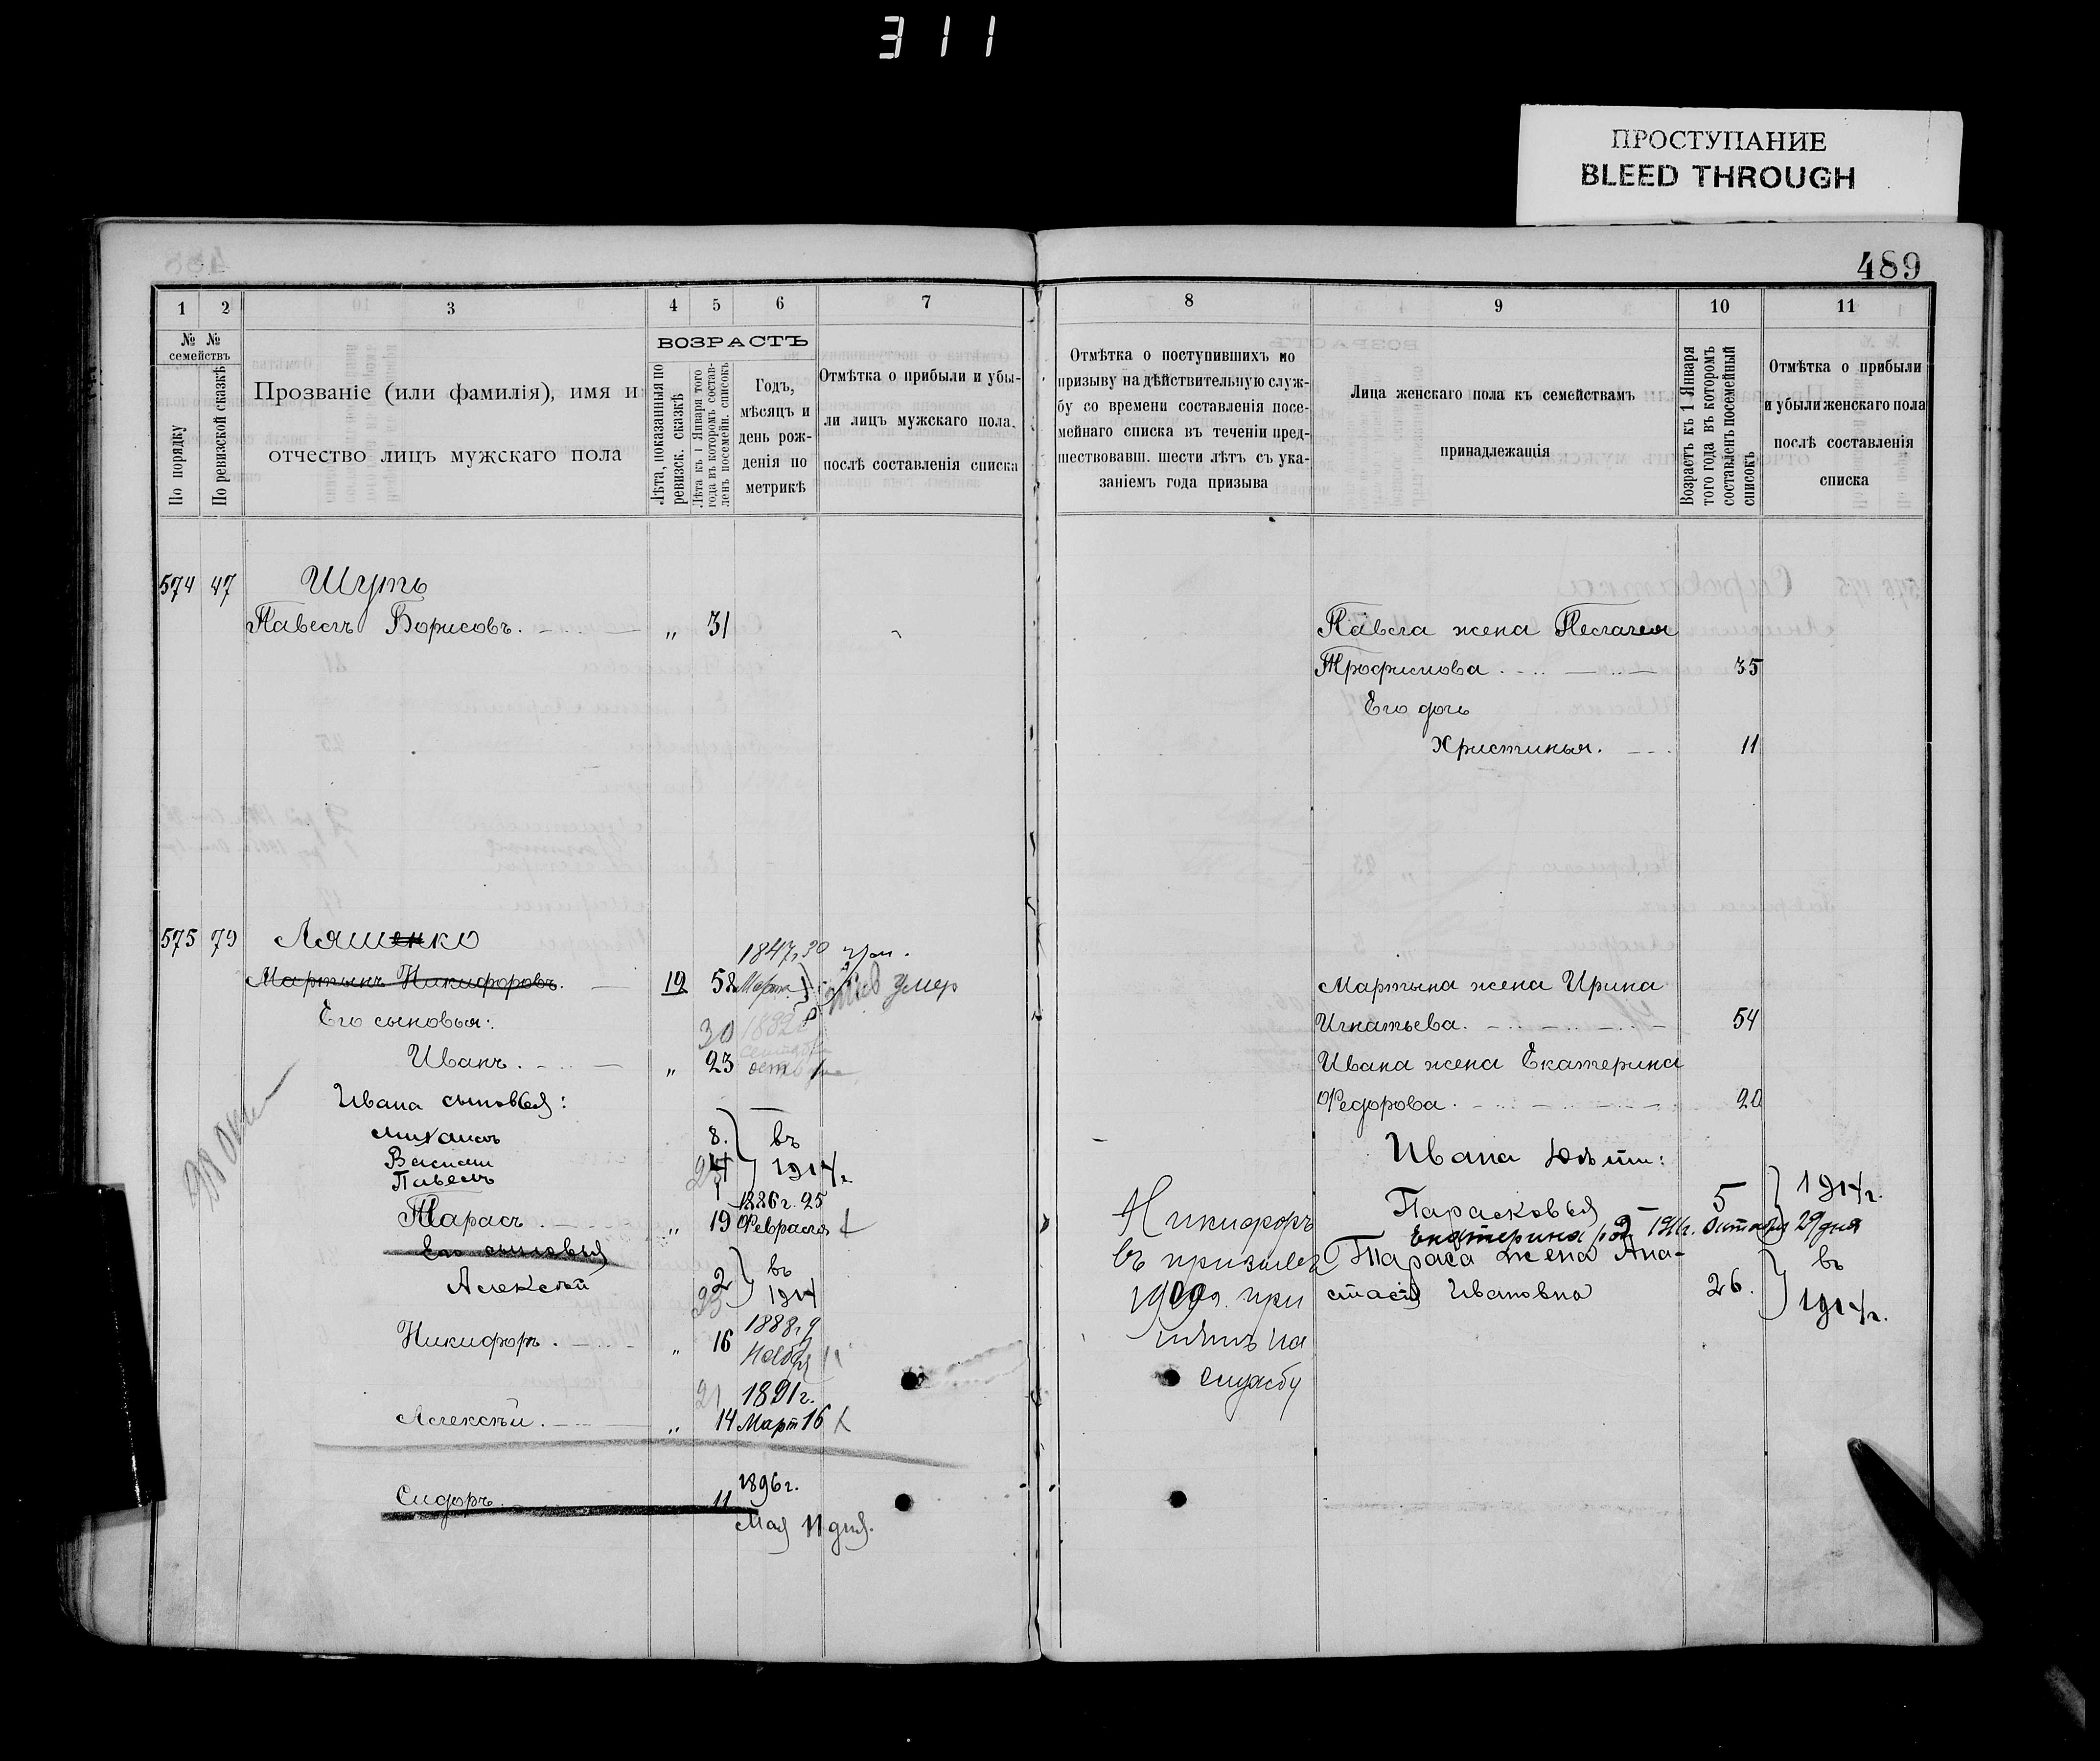 311
ПРОСТУПАНИЕ
BLEED THROUGH
489
1 2 3 4 5 6 7
№ № семействъ
По порядку
По ревизской сказкѣ
Прозваніе (или фамилія), имя и
отчество лицъ мужскаго пола
ВОЗРАСТЪ
Лѣта, показанныя по
ревизск. сказкѣ
Лѣта къ 1 Января того
года въ которомъ состав-
ленъ посемейн. списокъ
Годъ,
мѣсяцъ и
день рож-
денія по
метрикѣ
Отмѣтка о прибыли и убы-
ли лицъ мужскаго пола,
послѣ составленія списка
8 9 10 11
Отмѣтка о поступившихъ по
призыву на дѣйствительную служ-
бу со времени составленія посе-
мейнаго списка въ теченіи пред-
шествовавш. шести лѣтъ съ ука-
заніемъ года призыва
Лица женскаго пола къ семействамъ
принадлежащія
Возрастъ къ 1 Января
того года въ которомъ
составленъ посемейный
списокъ
Отмѣтка о прибыли
и убыли женскаго пола
послѣ составленія
списка
574 47 Шуть
Павелъ Борисовъ. „ 31
Павла жена Пелагея
Трофимова. 35
Его дочь
Христинья. 11
575 79 Ляшенко
1847, 30
Мартынъ Никифоровъ. 19 58 Марта умер
Его сыновья:
30 1882
Иванъ. „ 23
Ивана сыновья:
Михаилъ 8.
Василій 4
Павелъ 1
въ
1914 г.
1886 г. 25
Тарасъ. „ 19 Февраля
Его сыновья
Алексѣй 2
въ
1914
1888, 9
Никифоръ. „ 16 Ноября
21 1891 г.
Алексѣй. „ 14 Март 16
1896 г.
Сидоръ. 11
Мая 11 дня.
Никифоръ
въ призывъ
1909 г. при
нятъ на
службу
Мартына жена Ирина
Игнатьева. 54
Ивана жена Екатерина
Федорова. 20
Ивана дѣти:
Парасковья 5 1914 г.
Екатерина род. 1911 г. Октября 29 дня
Тараса жена Ана-
стасія Ивановна 26.
въ
1914 г.